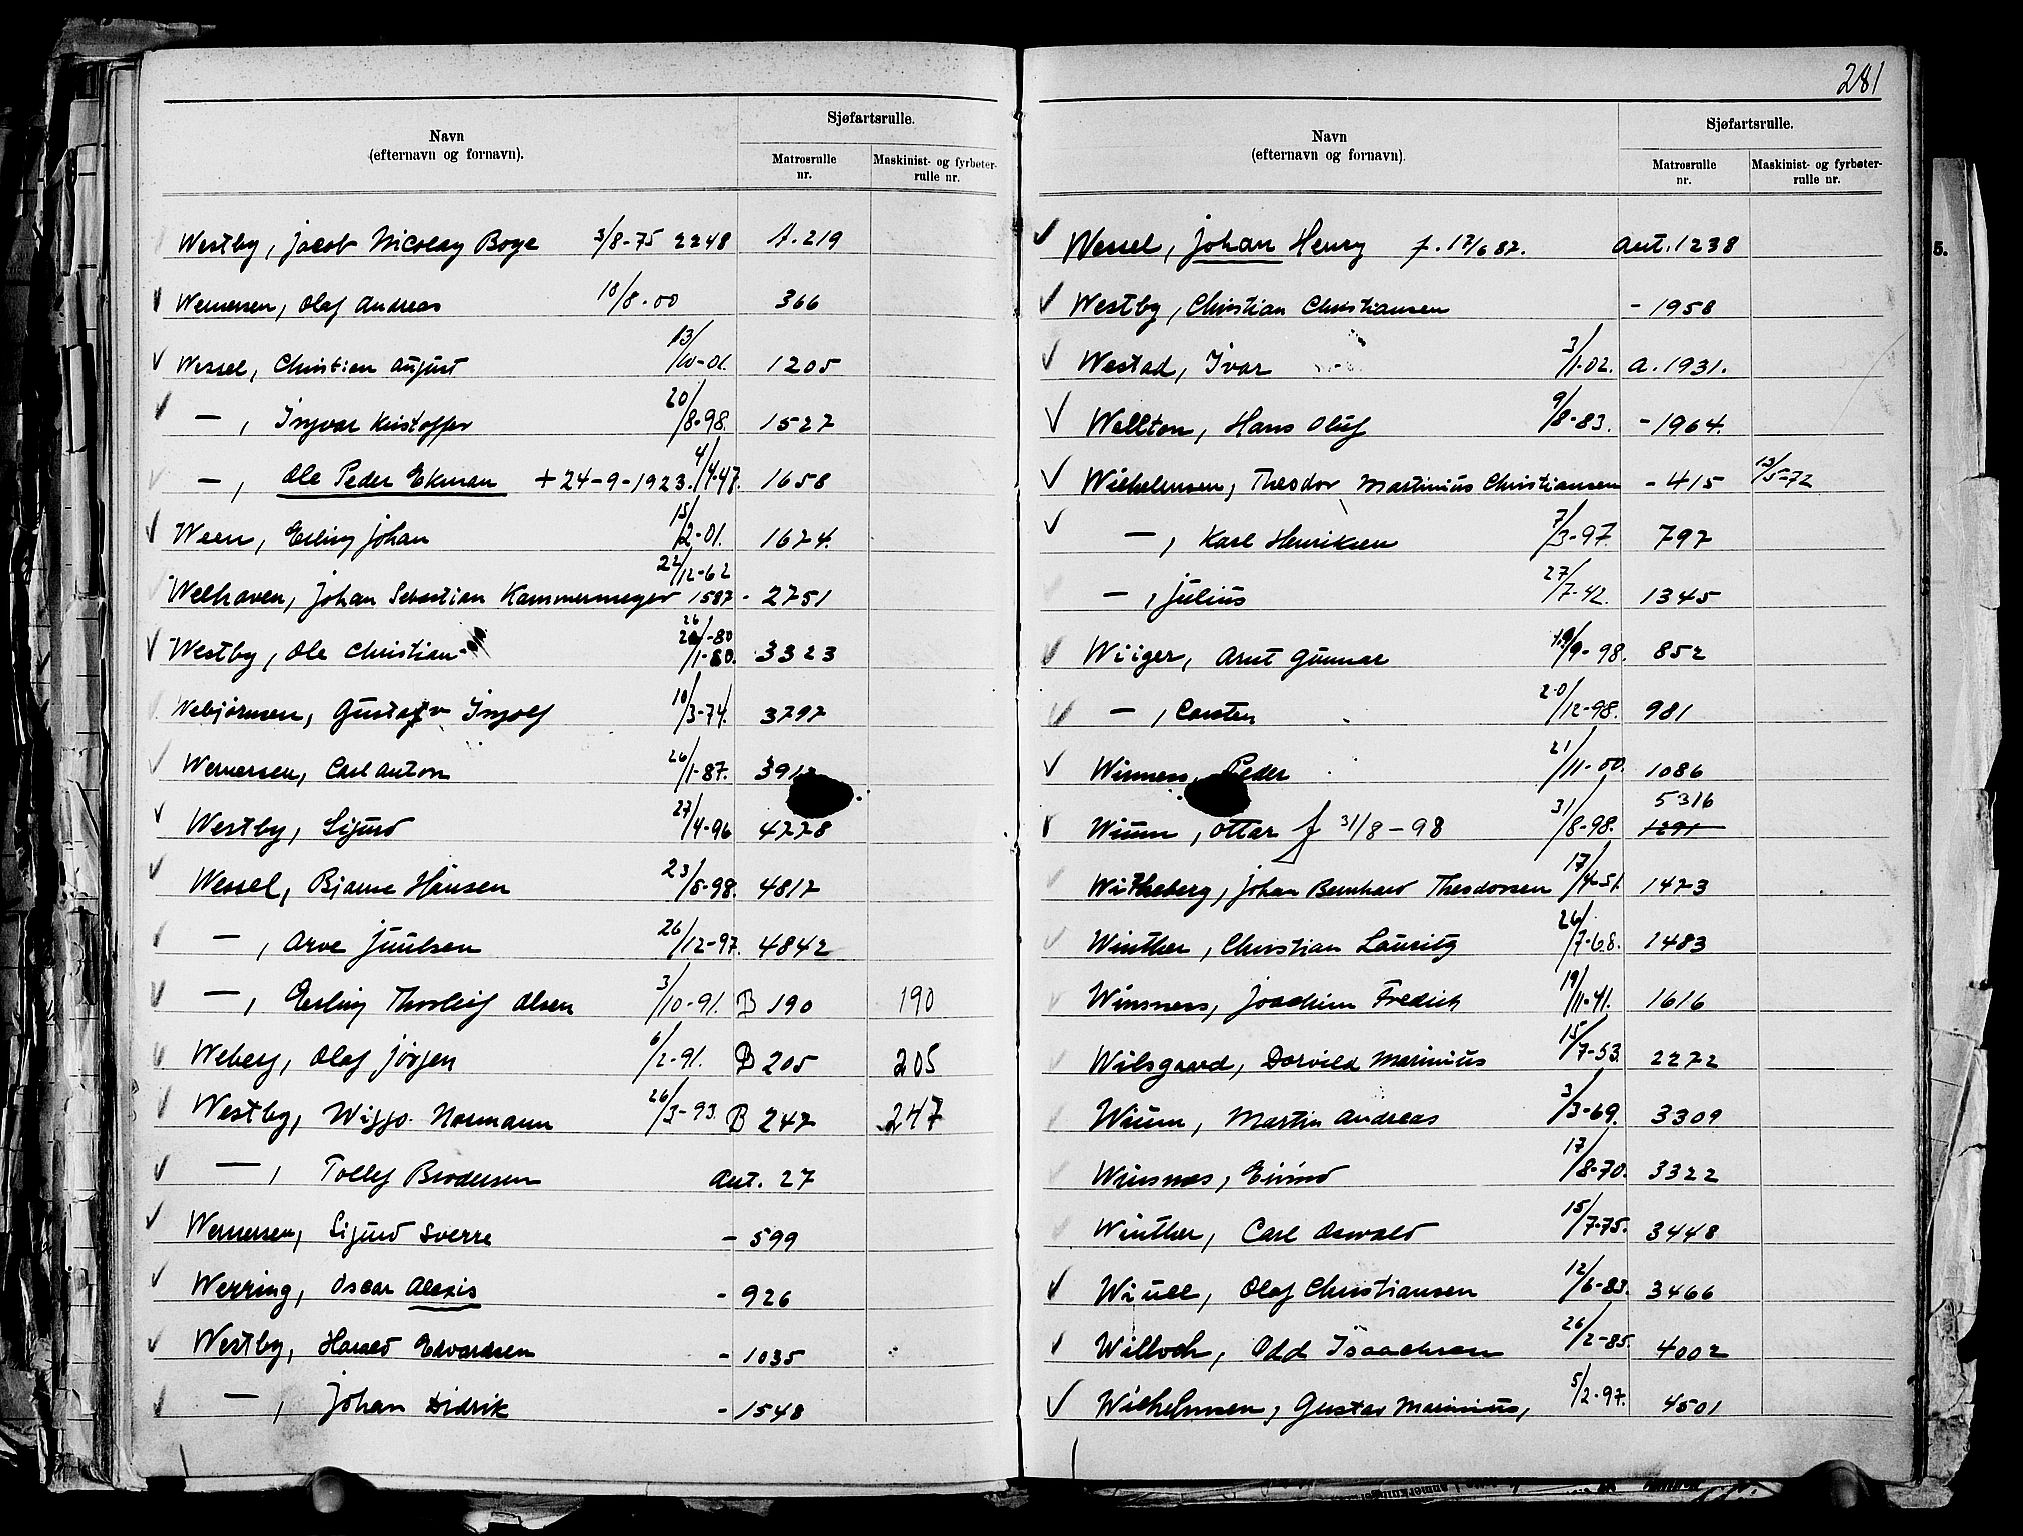 Navn
(efternavn og fornavn).
Sjøfartsrulle.
Matrosrulle nr.
Maskinist- og fyrbøter-rulle nr.
Westby, Jacob Nicolay Boye 3/8-75 2248 A. 219
Wernersen, Olaf Andreas 10/8-00 366
Wessel, Christian August 13/10-01. 1205
— , Ingvar Kristoffer 20/8-98. 1527
— , Ole Peder Ekman + 24-9-1923. 4/4-47. 1658
Ween, Erling Johan 15/2-01. 1674.
Welhaven, Johan Sebastian Kammermeyer 22/12-62 1587 - 2751
Westby, Ole Christian 26/1-80. 3323
Webjørnsen, Gustav Ingolf 10/3-74. 3797
Wernersen, Carl Anton 26/1-87. 391
Westby, Sigurd 27/4-96 4778
Wessel, Bjarne Hansen 23/8-98. 4817
— , Arve Juulsen 26/12-97. 4842
— , Erling Thorleif Olsen 3/10-91. B 190 190
Weberg, Olaf Jørgen 6/2-91. B 205 205
Westby, Wiggo Normann 26/3-93 B 247 247
— , Tollef Brodersen Ant. 27
Wernersen, Sigurd Sverre - 599
Werring, Oscar Alexis - 926
Westby, Harald Edvardsen - 1035
— , Johan Didrik - 1548
281
Navn
(efternavn og fornavn).
Sjøfartsrulle.
Matrosrulle nr.
Maskinist- og fyrbøter-rulle nr.
Wessel, Johan Henry f. 17/6 87. Ant. 1238
Westby, Christian Christiansen - 1958
Westad, Ivar 3/1-02. A. 1931.
Wellton, Hans Oluf 9/8-83. - 1964.
Wilhelmsen, Theodor Martinius Christiansen - 415 13/5-72
— , Karl Henriksen 7/3-97. 797
— , Julius 27/7-42. 1345
Wiiger, Arnt Gunnar 19/9-98. 852
— , Carsten 20/12-98. 981
Winness, Peder 21/11-00. 1086
Wium, Ottar f 31/8-98 31/8-98. 5316 1291
Witheberg, Johan Bernhard Theodorsen 17/4-51. 1473
Winther, Christian Lauritz 26/7-68. 1483
Winsness, Joachim Fredrik 19/11-41. 1616
Wilsgaard, Dorvild Marinius 15/7-53. 2272
Wium, Martin Andreas 3/3-69. 3309
Winsnes, Eivind 17/8-70. 3322
Winther, Carl Oswald 15/7-75. 3448
Wiull, Olaf Christiansen 12/6-83. 3466
Willoch, Odd Isaachsen 26/2-85. 4002
Wilhelmsen, Gustav Marinius, 5/2-97. 4501
5.